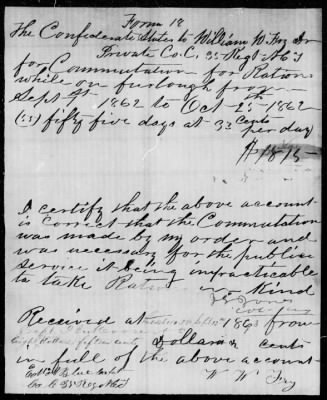 Form 18
The Confederate States to William W. Fry Dr
Private Co. C, 35 Regt N.C.T
for Commutation for Rations
while on furlough from
Sept 1st 1862 to Oct 25th 1862
(55) fifty five days at 33 cents
per day
$18.15
I certify that the above account
is correct that the Commutation
was made by my order and
was necessary for the public
service it being impracticable
to take Rations in kind
Jones
Received at 1863 from
eight dollars fifteen cents Dollars cents
in full of the above account
W. W. Fry